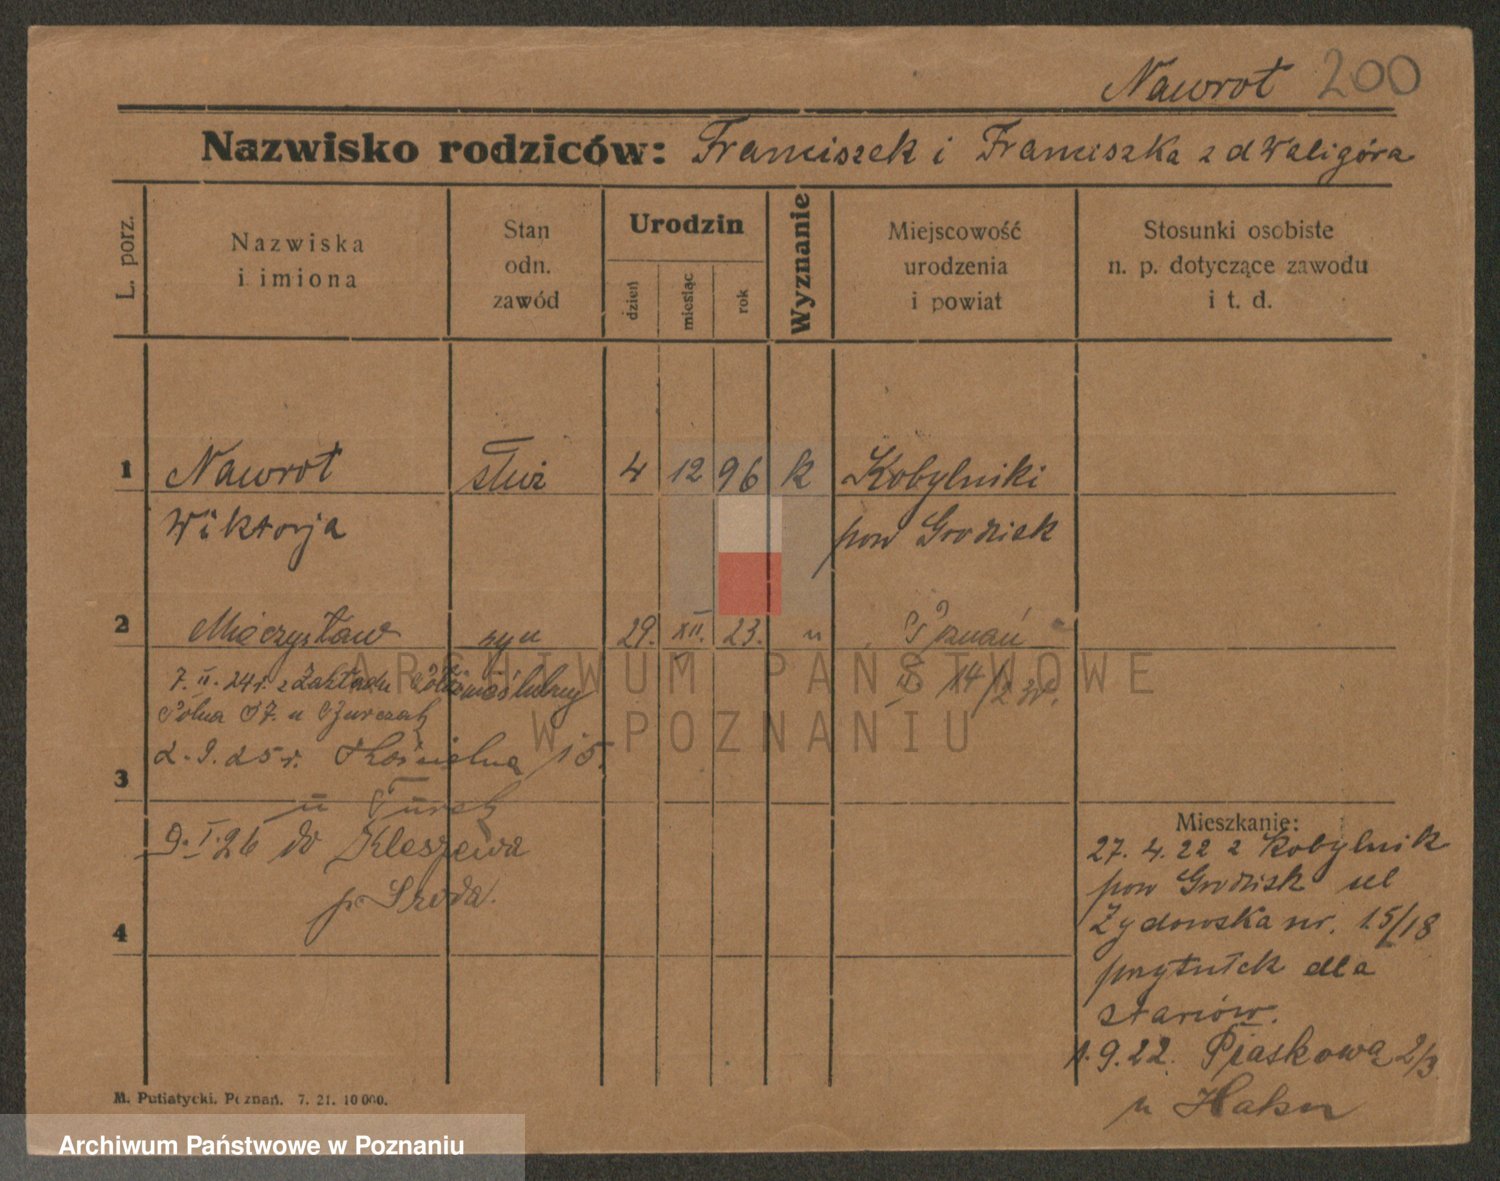 Nawrot 200
Nazwisko rodziców: Franciszek i Franciszka z d Waligóra
L. porz.
Nazwiska
i imiona
Stan
odn.
zawód
Urodzin
dzień
miesiąc
rok
Wyznanie
Miejscowość
urodzenia
i powiat
Stosunki osobiste
n. p. dotyczące zawodu
i t. d.
1 Nawrot służ 4 12 96 k Kobylniki
Wiktorja pow Grodzisk
2 Mieczysław syn 29. XII. 23. " Poznań
7. II. 24 r. z Zakładu
Polna 37. u
ARCHIWUM PAŃSTWOWE
W POZNANIU
2. 9. 25 r. Kościelna 15.
3
u Turek
9. I. 26 do Kleszewa
p. Środa.
4
Mieszkanie:
27. 4. 22 z Kobylnik
pow Grodzisk ul
Żydowska nr. 15/18
przytułek dla
starców.
1. 9. 22. Piaskowa 2/3
M. Putiatycki. Poznań. 7. 21. 10 000.
Archiwum Państwowe w Poznaniu